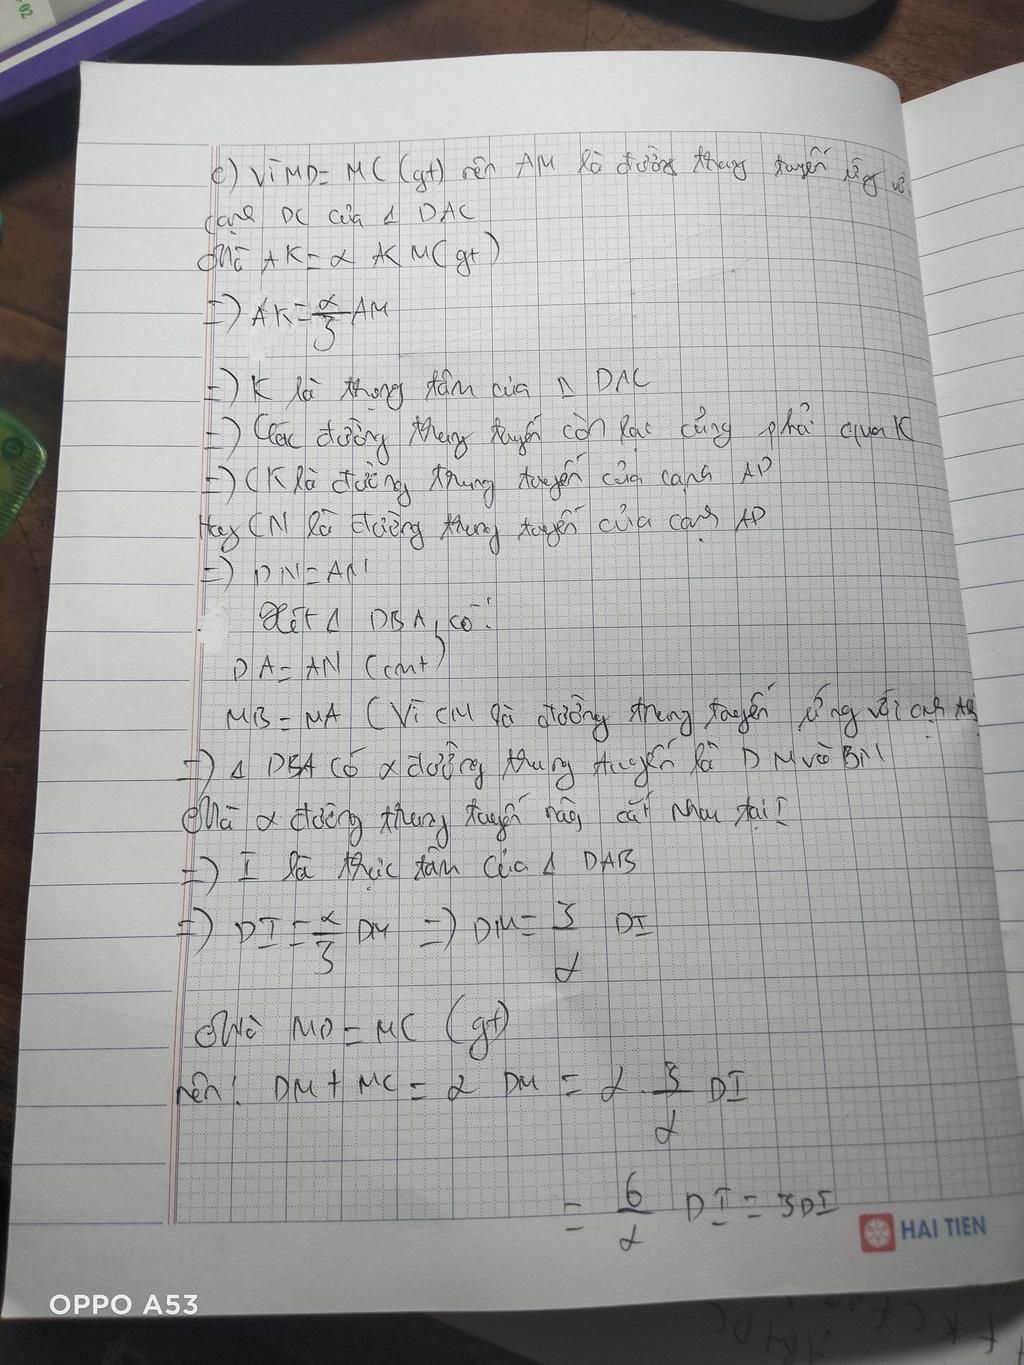 02
c) Vì MD = MC (gt) nên AM là đường trung tuyến ứng với
cạnh DC của Δ DAC
Mà AK = 2 KM (gt)
=) AK = 2/3 AM
=) K là trọng tâm của Δ DAC
=) Các đường trung tuyến còn lại cũng phải qua K
=) CK là đường trung tuyến của cạnh AD
Hay CN là đường trung tuyến của cạnh AD
=) DN = AN
Xét Δ DBA, có:
DA = AN (cmt)
MB = MA (Vì CM là đường trung tuyến ứng với cạnh AB
=) Δ DBA có 2 đường trung tuyến là DM và BN
Mà 2 đường trung tuyến này cắt nhau tại I
=) I là trực tâm của Δ DAB
=) DI = 2/3 DM =) DM = 3/2 DI
Mà MD = MC (gt)
nên: DM + MC = 2 DM = 2 . 3/2 DI
= 6/2 DI = 3DI
HAI TIEN
OPPO A53